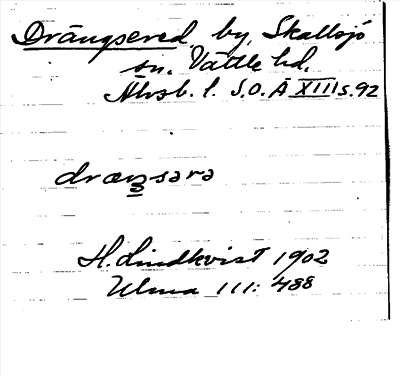 Drängsered, by, Skallsjö
sn. Vättle hd.
Älvsb. l. S.O.Ä XIII s. 92
dræŋsərə
H. Lindkvist 1902
Ulma 111: 488